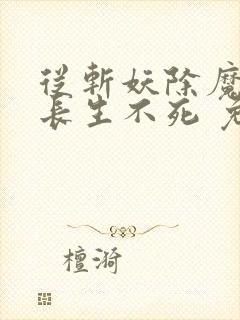 從斬妖除魔
長生不死
檀漪